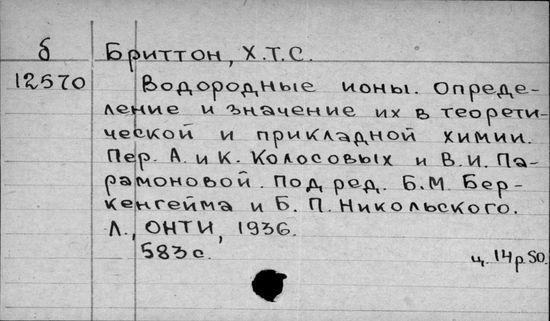 б Бриттон, Х.Т.С.
12570 Водородные ионы. Опреде-
ление и значение их в теорети-
ческой и прикладной химии.
Пер. А. и К. Колосовых и В. И. Па-
рамоновой. Под ред. Б. М. Бер-
кенгейма и Б. П. Никольского.
Л., ОНТИ, 1936.
583 с.
ц. 14 р. 50.